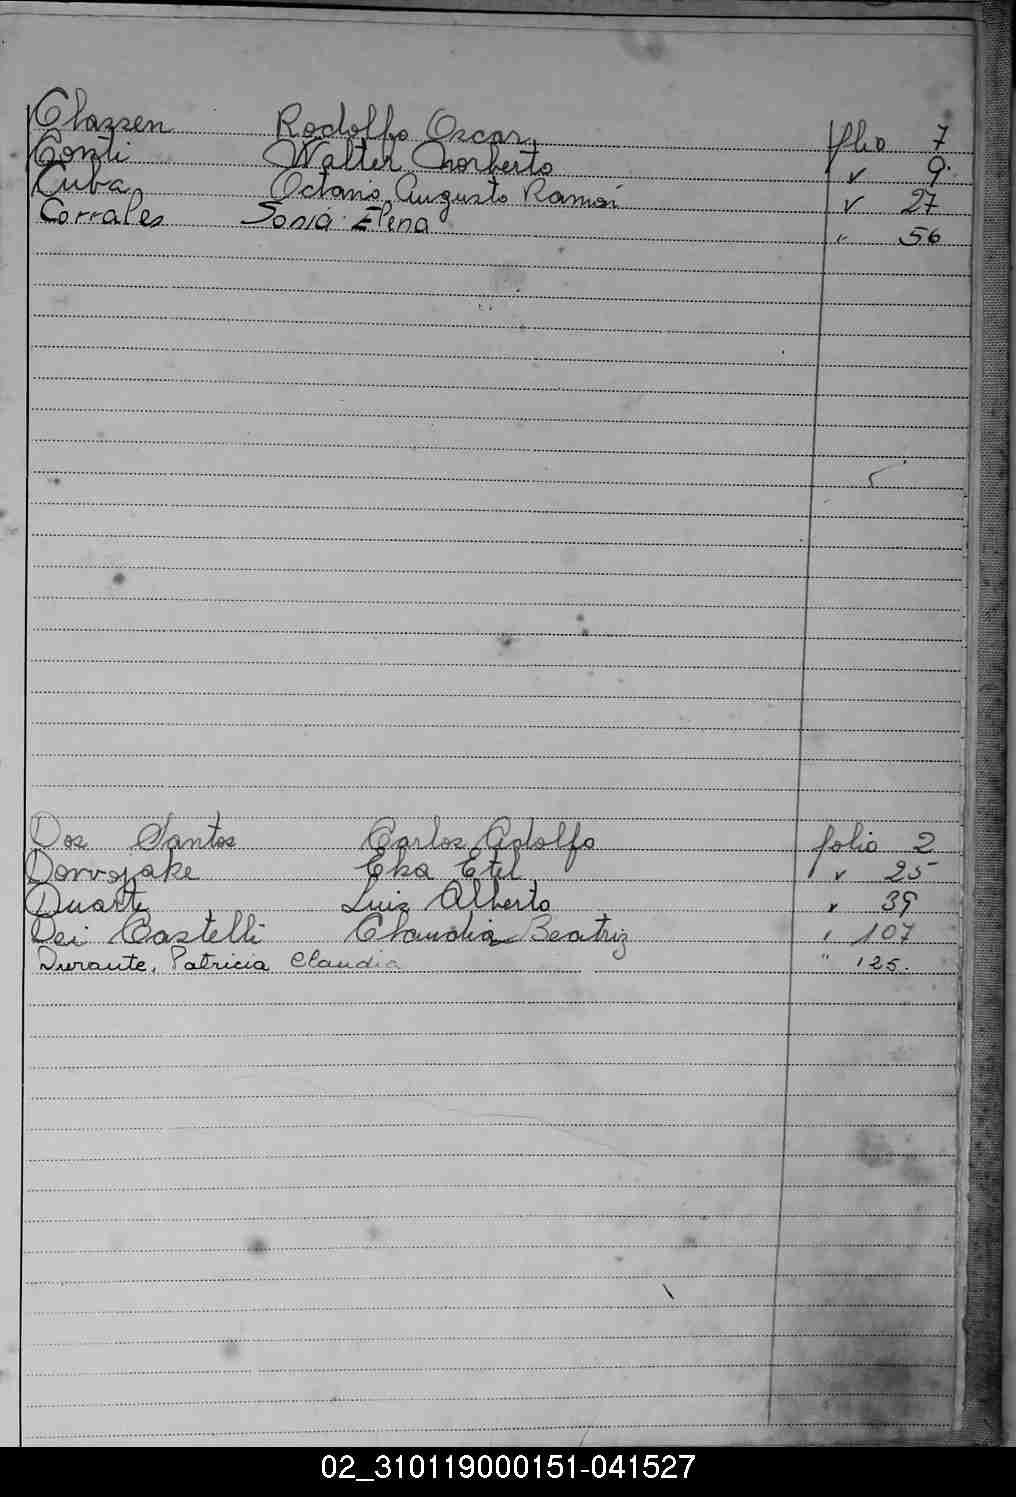 Classen Rodolfo Oscar folio 7
Conti Walter Norberto " 9
Cuba Octavio Augusto Ramón " 27
Corrales Sonia Elena " 56
Dos Santos Carlos Adolfo folio 2
Etel " 25
Duarte Luis Alberto " 39
Dei Castelli Claudia Beatriz " 107
Durante, Patricia Claudia " 125.
02_310119000151-041527